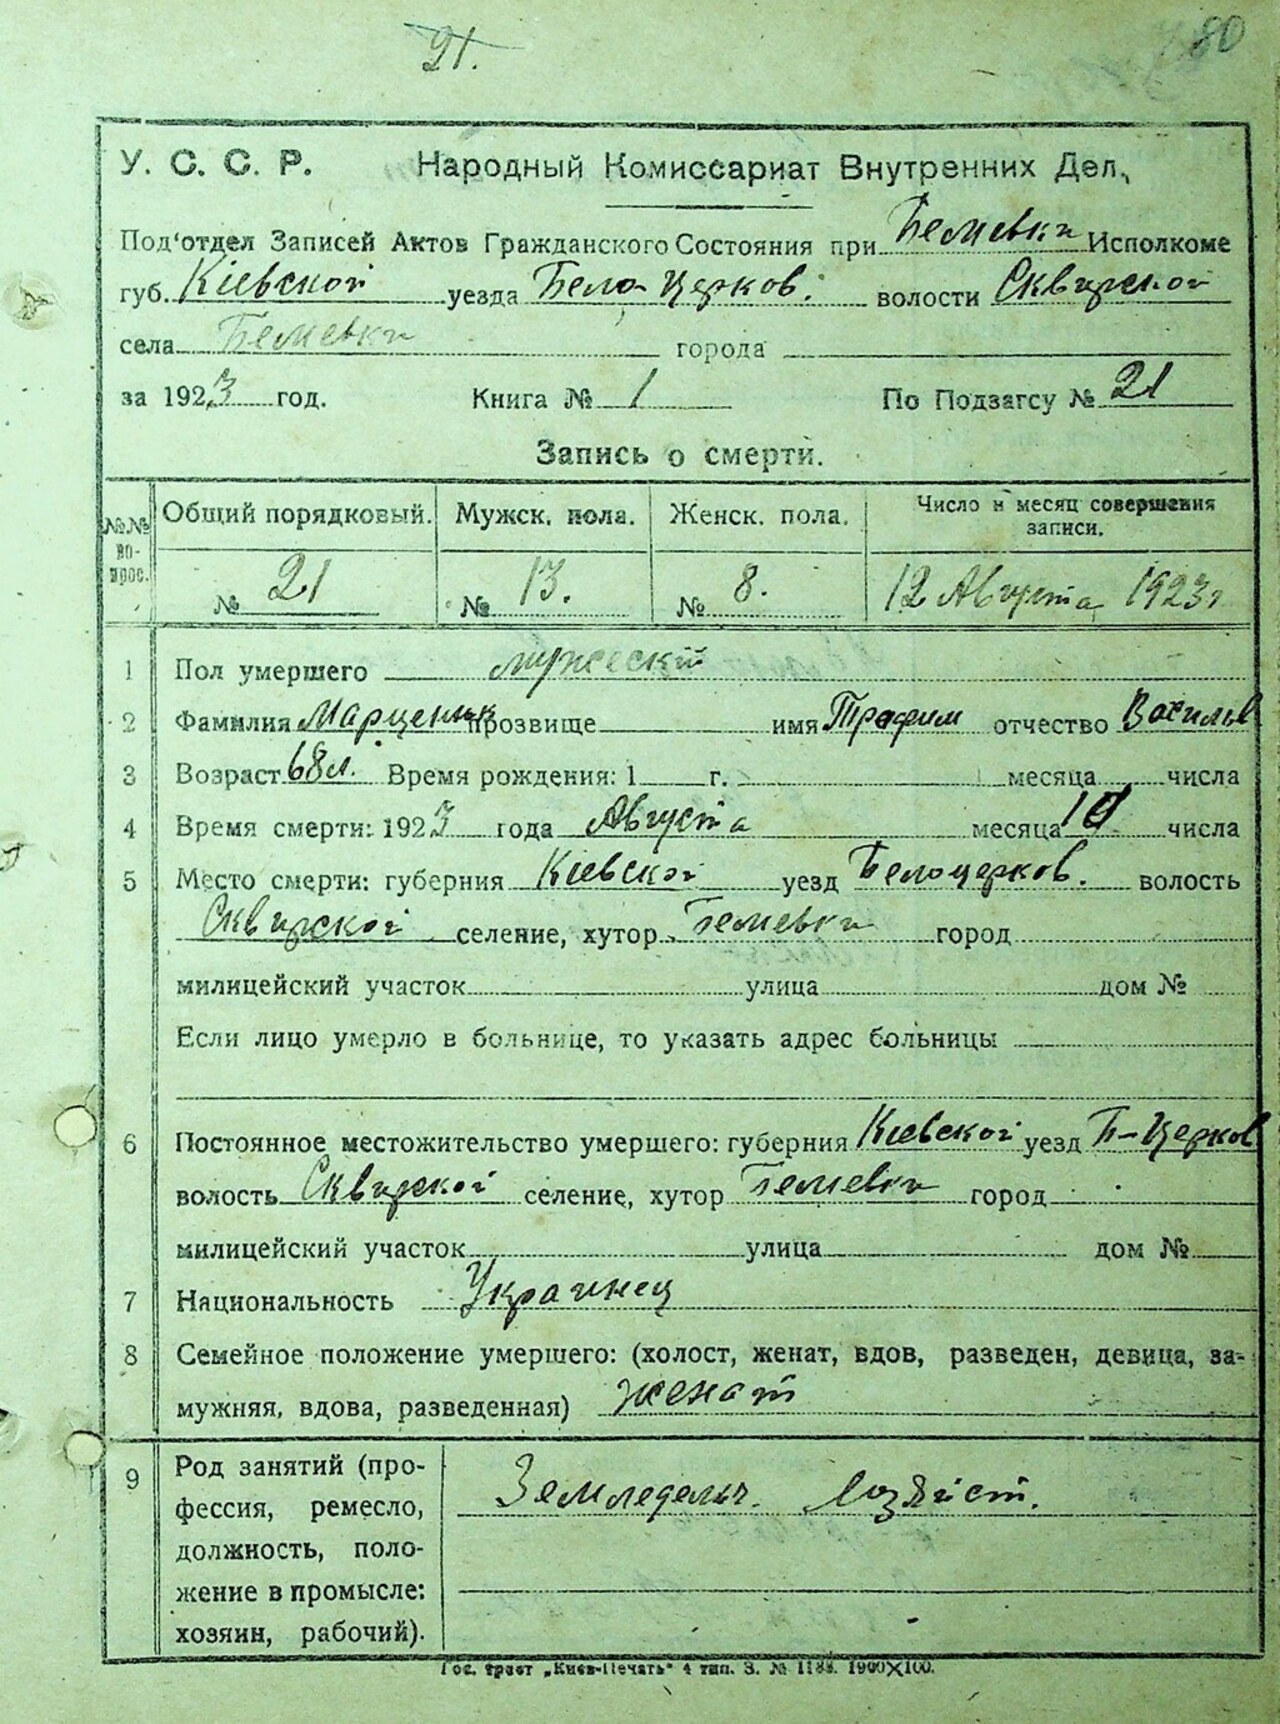 21.
80
У. С. С. Р. Народный Комиссариат Внутренних Дел,
Под'отдел Записей Актов Гражданского Состояния при Исполкоме
губ. Кіевской уезда Бело-Церков. волости Сквирской
села города
за 1923 год. Книга № 1 По Подзагсу № 21
Запись о смерти.
№№ во-прос. Общий порядковый. Мужск. пола. Женск. пола. Число и месяц совершения записи.
№ 21 № 13. № 8. 12 Августа 1923 г
1 Пол умершего мужеский
2 Фамилия Марценюк прозвище имя Трофим отчество Васильев
3 Возраст 68 л. Время рождения: 1 г. месяца числа
4 Время смерти: 1923 года Августа месяца 10 числа
5 Место смерти: губерния Кіевской уезд Белоцерков. волость
Сквирской селение, хутор город
милицейский участок улица дом №
Если лицо умерло в больнице, то указать адрес больницы
6 Постоянное местожительство умершего: губерния Кіевской уезд Б-Церков
волость Сквирской селение, хутор город
милицейский участок улица дом №
7 Национальность Украинец
8 Семейное положение умершего: (холост, женат, вдов, разведен, девица, за-
мужняя, вдова, разведенная) женат
9 Род занятий (про-
фессия, ремесло,
должность, поло-
жение в промысле:
хозяин, рабочий).
Земледельч.
Гос. трест „Киев-Печать" 4 тип. З. № 1188. 1900×100.